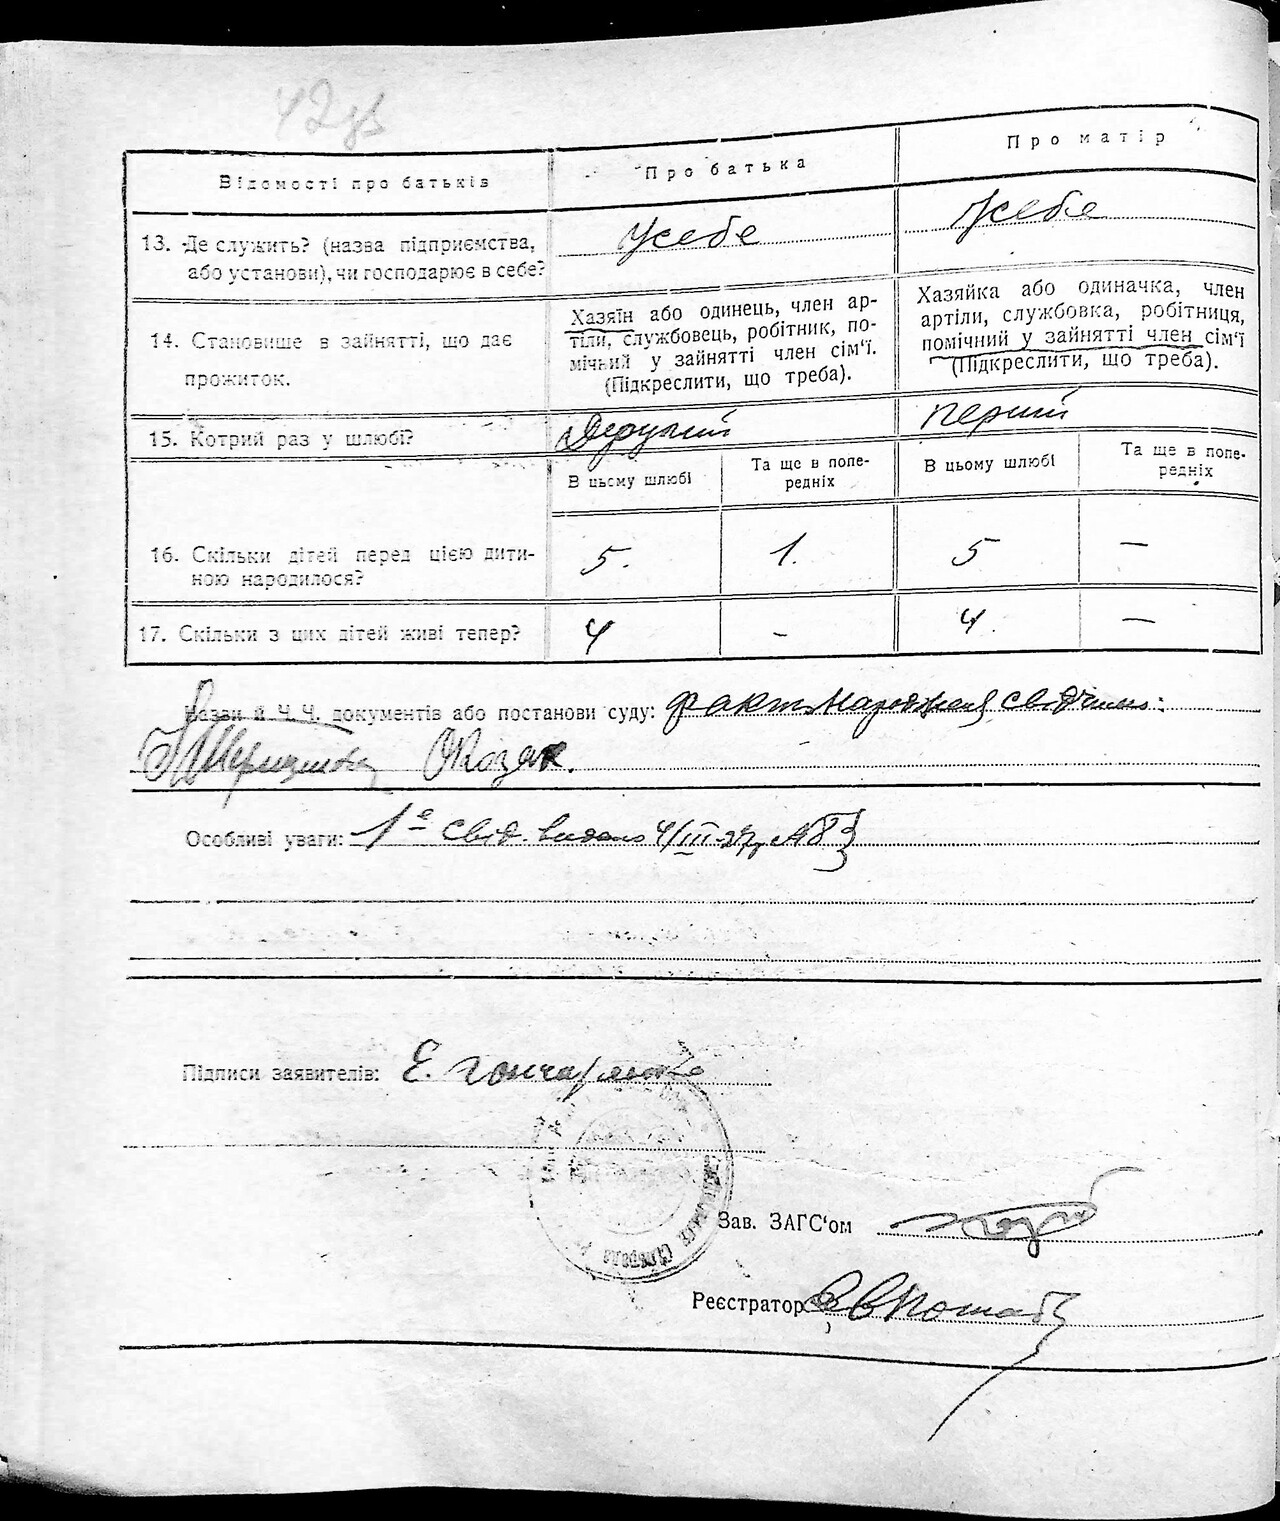 42зв
Відомості про батьків
Про батька
Про матір
13. Де служить? (назва підприємства,
або установи), чи господарює в себе?
У себе
У себе
14. Становище в зайнятті, що дає
прожиток.
Хазяїн або одинець, член ар-
тіли, службовець, робітник, по-
мічний у зайнятті член сім'ї.
(Підкреслити, що треба).
Хазяйка або одиначка, член
артіли, службовка, робітниця,
помічний у зайнятті член сім'ї
(Підкреслити, що треба).
15. Котрий раз у шлюбі?
Другий
перший
В цьому шлюбі
Та ще в попе-
редніх
В цьому шлюбі
Та ще в попе-
редніх
16. Скільки дітей перед цією дити-
ною народилося?
5.
1.
5
—
17. Скільки з цих дітей живі тепер?
4
-
4.
—
Назви й Ч.Ч. документів або постанови суду: факт народження свідчимо:
Козак.
Особливі уваги: 1е свід. видано 4/III-27р №
Підписи заявителів: Е. Гончаренко
Зав. ЗАГС'ом
Реєстратор